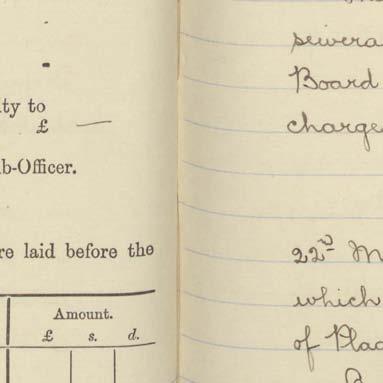 ty to
£ —
b-Officer.
re laid before the
Amount.
£ s. d.
Board
charge
22nd M
which
of Plac